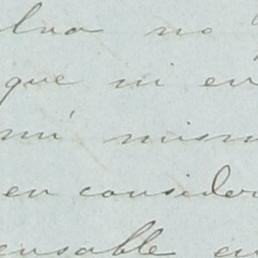 lva no
que ni en
mí mism
en consider
ensable en